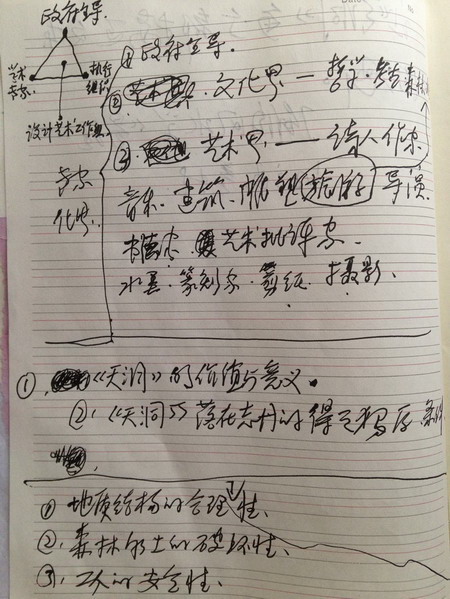 政府主导
艺术
专家
执行
组织
设计艺术工作组
专家
化界
① 政府主导.
② 文化界 — 哲学
③ 艺术界 —— 诗人 作家
音乐、建筑、雕塑 导演
艺术批评家.
水墨·篆刻家·剪纸·摄影、
①、《天洞》的价值与意义。
②、《天洞》落在 的得天独厚条件
① 地质结构的合理性、
②、森林水土的破坏性、
③、工人的安全性、